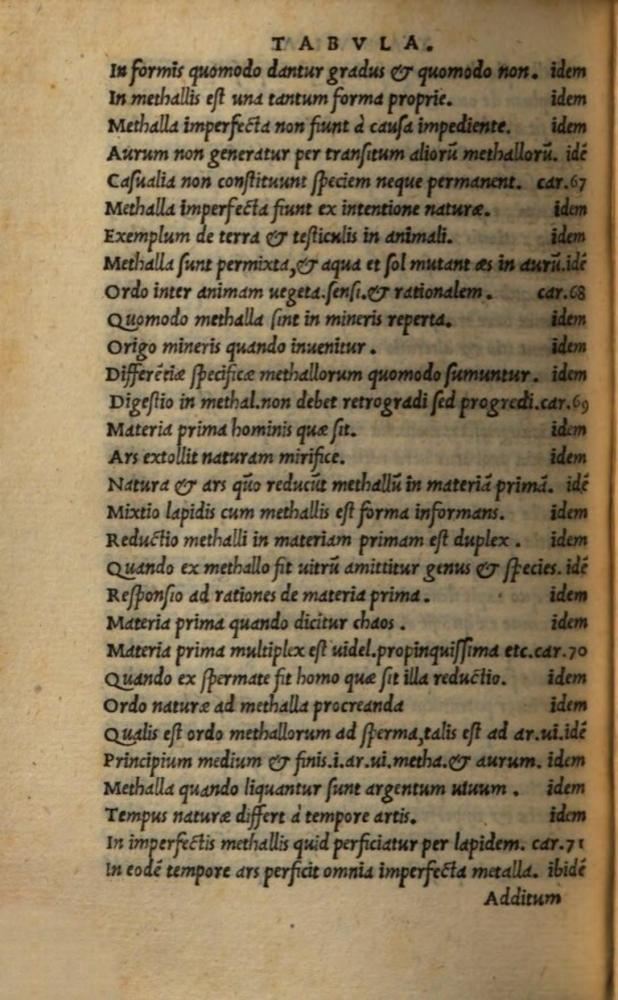 TABVLA.
In formis quomodo dantur gradus & quomodo non. idem
In methallis eſt una tantum forma proprie. idem
Methalla imperfecta non fiunt à cauſa impediente. idem
Aurum non generatur per tranſitum aliorũ methallorũ. idẽ
Caſualia non conſtituunt ſpeciem neque permanent. car.67
Methalla imperfecta fiunt ex intentione naturæ. idem
Exemplum de terra & teſticulis in animali. idem
Methalla ſunt permixta,& aqua et ſol mutant æs in aurũ.idẽ
Ordo inter animam uegeta.ſenſi.& rationalem. car.68
Quomodo methalla ſint in mineris reperta. idem
Origo mineris quando inuenitur. idem
Differẽtiæ ſpecificæ methallorum quomodo ſumuntur. idem
Digeſtio in methal.non debet retrogradi ſed progredi.car.69
Materia prima hominis quæ ſit. idem
Ars extollit naturam mirifice. idem
Natura & ars quõ reducũt methallũ in materiã primã. idẽ
Mixtio lapidis cum methallis eſt forma informans. idem
Reductio methalli in materiam primam eſt duplex. idem
Quando ex methallo fit uitrũ amittitur genus & ſpecies. idẽ
Reſponſio ad rationes de materia prima. idem
Materia prima quando dicitur chaos. idem
Materia prima multiplex eſt uidel.propinquiſſima etc.car.70
Quando ex ſpermate fit homo quæ ſit illa reductio. idem
Ordo naturæ ad methalla procreanda idem
Qualis eſt ordo methallorum ad ſperma,talis eſt ad ar.ui.idẽ
Principium medium & finis.i.ar.ui.metha.& aurum. idem
Methalla quando liquantur ſunt argentum uiuum. idem
Tempus naturæ differt à tempore artis. idem
In imperfectis methallis quid perficiatur per lapidem. car.71
In eodẽ tempore ars perficit omnia imperfecta metalla. ibidẽ
Additum